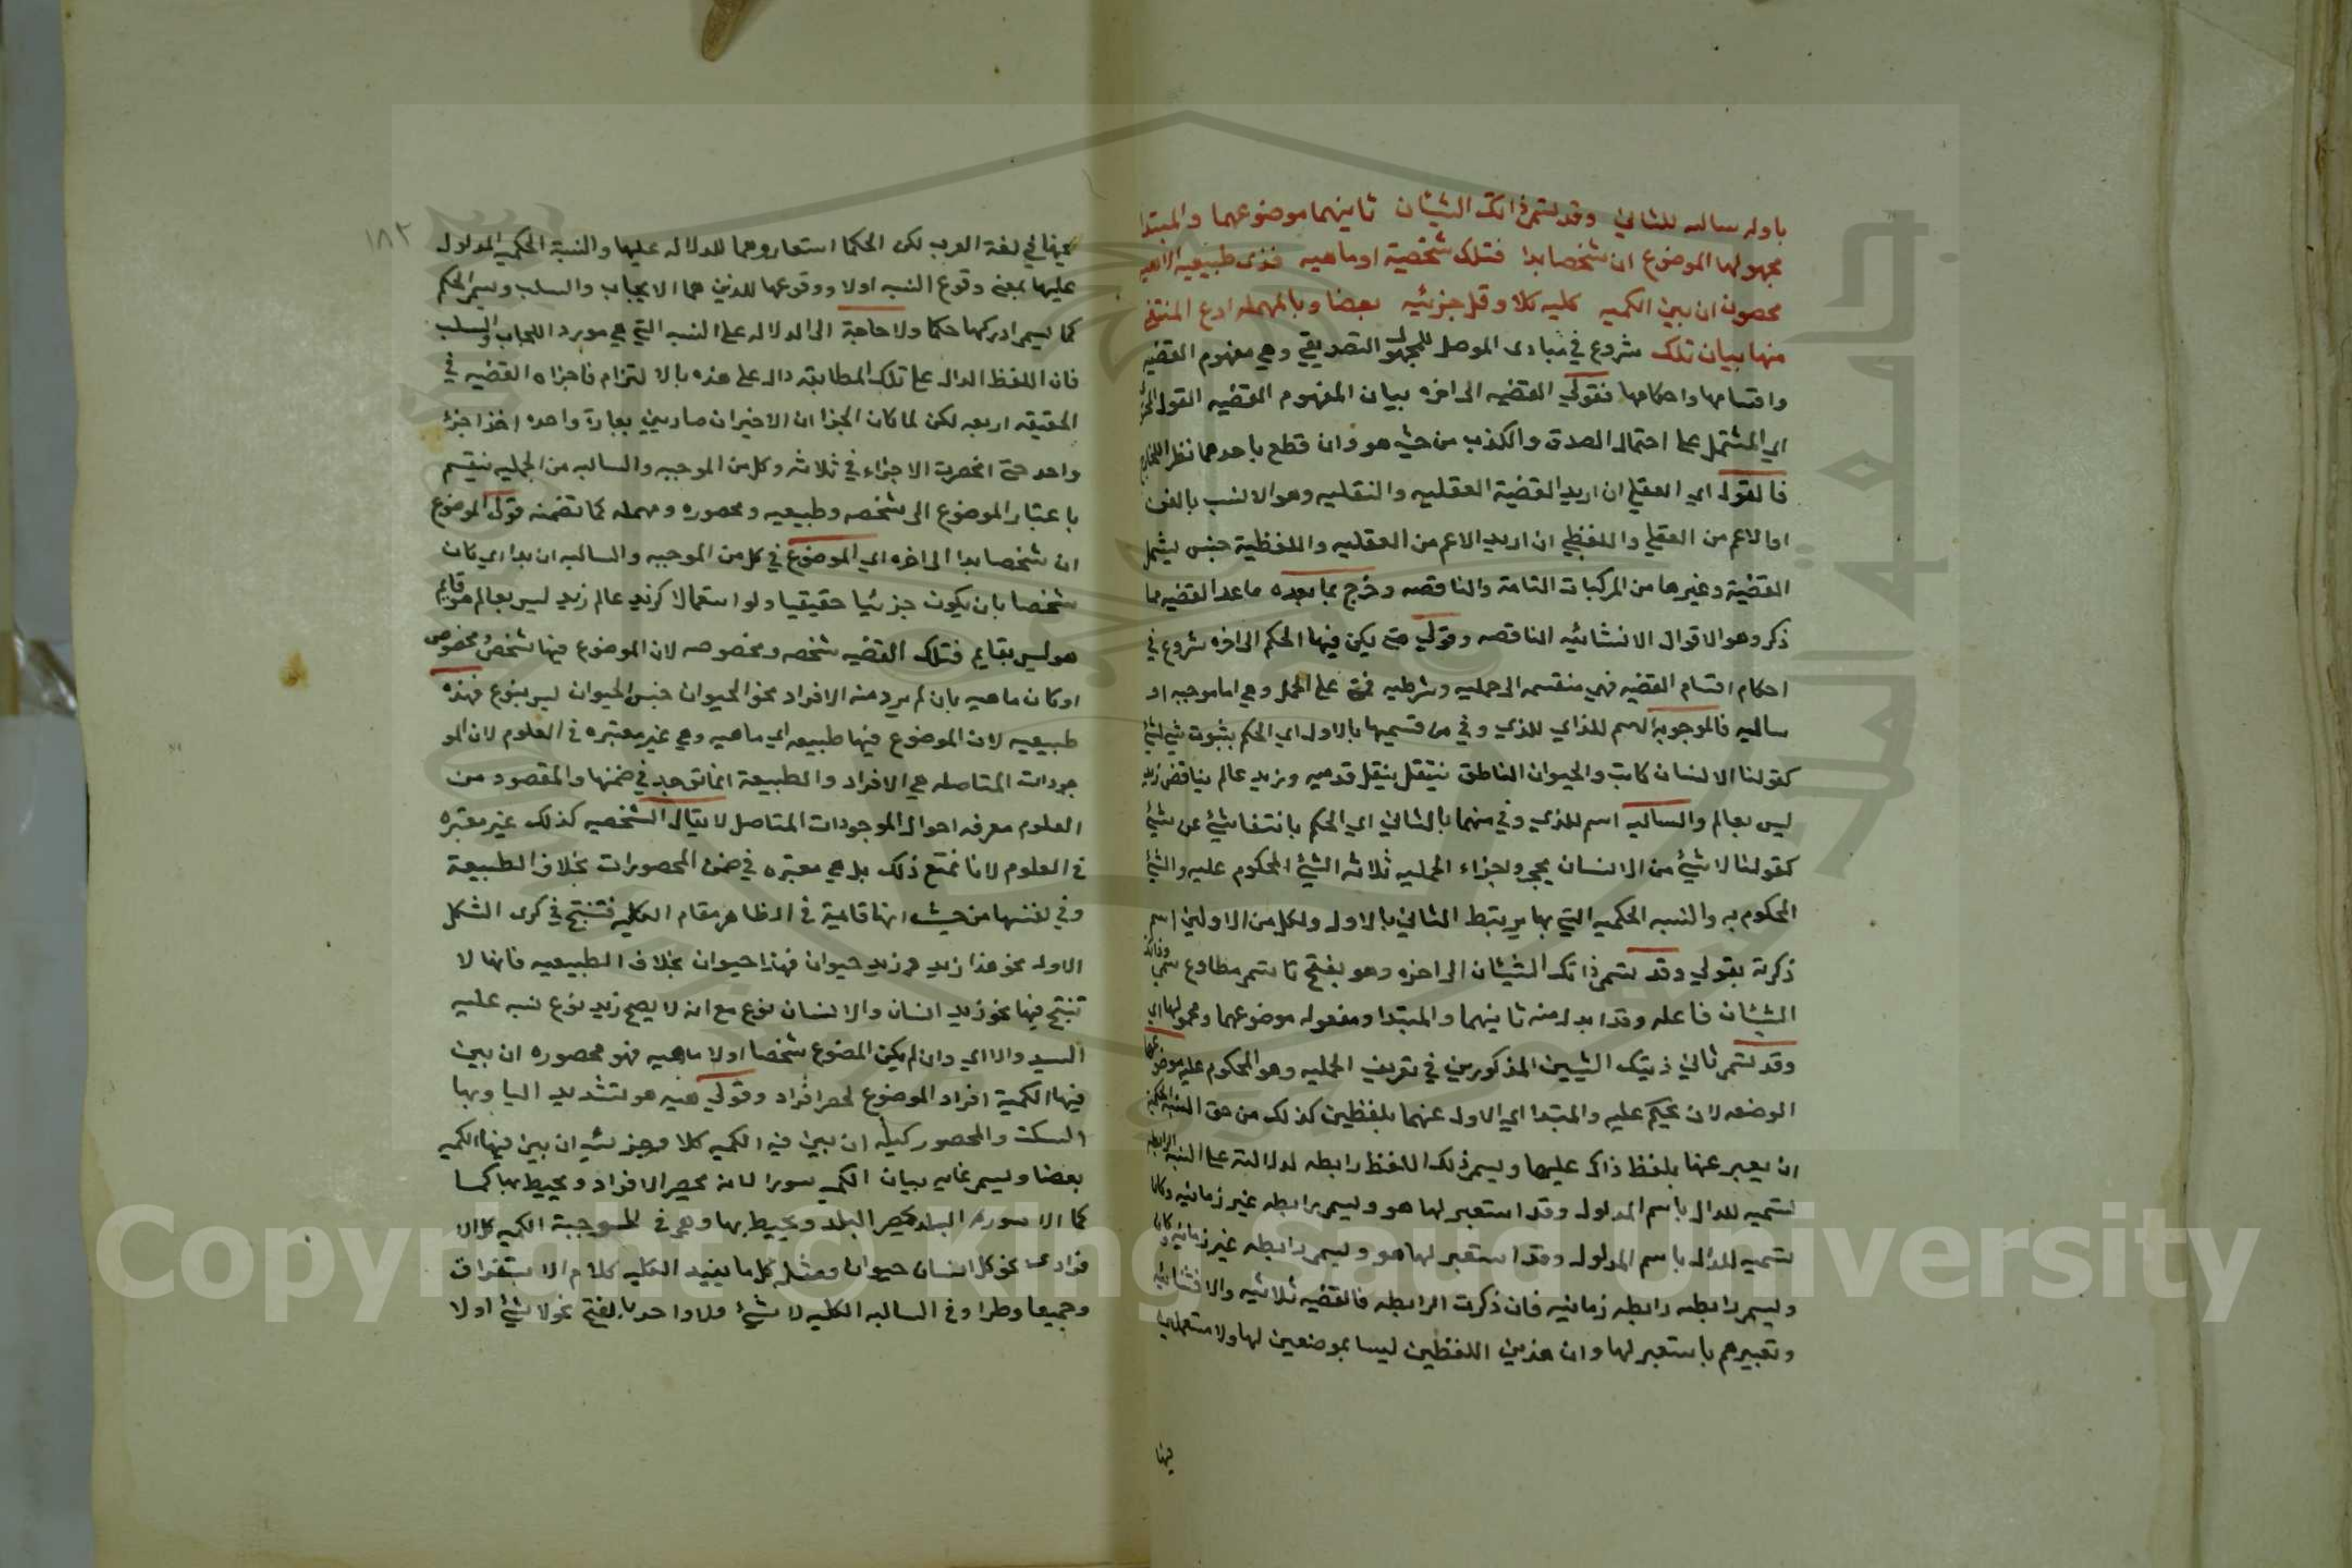 باوله سالبه للثاني وقد تسمى ذانك الشيئان ثانيهما موضوعهما والمبتدا
محمولها الموضوع ان شخصا بدا فتلك شخصية او ماهيه فذى طبيعيه الا هيه
محصورة ان بين الكميه كليه كلا وقل جزئيه بعضا وبالمهملة ادع المنتفى
منها بيان تلك شروع في مبادى الموصل للمجهول التصديقي وهي مفهوم القضيه
واقسامها واحكامها فقولي القضيه الى اخره بيان المفهوم القضيه القول
اي المشتمل على احتمال الصدق والكذب من حيث هو وان قطع باحدهما نظر
فالقول اي العقلي ان اريد القضية العقليه والنقليه وهو الانسب بالفن
او الاعم من العقلي واللفظي ان اريد الاعم من العقليه واللفظية جنس يشمل
القضية وغيرها من المركبات التامة والناقصه وخرج بما بعده ما عدا القضيه مما
ذكر وهو الاقوال الانشائيه الناقصه وقولي متى يكن فيها الحكم الى اخره شروع في
احكام اقسام القضيه فهي منقسمه الى حمليه وشرطيه على الحمل وهي اما موجبه او
سالبه فالموجوبة اسم للذاي للذي وفي من قسميها بالاول اي الحكم بثبوت شي لشئ
كقولنا الانسان كاتب والحيوان الناطق ينتقل بنقل قدميه وزيد عالم يناقض زيد
ليس بعالم والسالبه اسم للذي وفي منهما بالثاني اي الحكم بانتفا شئ عن شئ
كقولنا لا شئ من الانسان بحجر واجزاء الحمليه ثلاثه الشئ المحكوم عليه والشئ
المحكوم به والنسبه الحكميه التي بها يرتبط الثاني بالاول ولكل من الاولين اسم
ذكرته بقولي وقد تسمى ذانك الشيئان الى اخره وهو بفتح تا تسمى مطاوع سمى وذانك
الشيئان فاعله وقد ابدل منه ثانيهما والمبتدا ومفعوله موضوعهما ومحمولها اي
وقد تسمى ثاني ذينك الشيئين المذكورين في تعريف الحمليه وهو المحكوم عليه موضوعها
الوضعه لان يحكم عليه والمبتدا اي الاول عنهما بلفظين كذلك من حق النسبه الحكميه
ان يعبر عنها بلفظ ذاك عليها ويسمى ذلك اللفظ رابطه لدلالته على النسبه الرابطه
تسميه للدال باسم المدلول وقد استعير لها هو ويسمى رابطه غير زمانيه وكان
تسميه للدال باسم المدلول وقد استعير لها هو ويسمى رابطه غير زمانيه وكان
ويسمى رابطه رابطه زمانيه فان ذكرت الرابطه فالقضيه ثلاثيه والا فثنائيه
وتعبيرهم باستعير لها وان هذين اللفظين ليسا بموضعين لها ولا مستعملين
فيها
١٨٢
فيها في لغة العرب لكن الحكما استعاروهما للدلاله عليها والنسبة الحكميه المدلول
عليها بمعنى وقوع النسبه اولا ووقوعها للذين هما الايجاب والسلب ويسمى الحكم
كما يسمى ادركها حكما ولا حاجة الى الدلاله على النسبه التي هي مورد الايجاب والسلب
فان اللفظ الدال على تلك المطابقة دال على هذه بالالتزام فاجزاء القضيه في
الحقيقه اربعه لكن لما كان الجزا ان الاخيران صاربين بعبارة واحده اخذا جزء
واحد حتى انحصرت الاجزاء في ثلاثه وكل من الموجبه والسالبه من الحمليه ينقسم
باعتبار الموضوع الى شخصه وطبيعيه ومحصوره ومهمله كما تضمنه قولى الموضوع
ان شخصا بدا الى اخره اي الموضوع في كل من الموجبه والسالبه ان بدا اي كان
شخصا بان يكون جزئيا حقيقيا ولو استعمالا كزيد عالم زيد ليس بعالم هو قايم
هو ليس بقايم فتلك القضيه شخصه ومخصوصه لان الموضوع فيها شخص مخصوص
او كان ماهيه بان لم يرد منه الافراد نحو الحيوان جنس الحيوان ليس بنوع فهذه
طبيعيه لان الموضوع فيها طبيعه اي ماهيه وهي غير معتبره في العلوم لان المو
جودات المتاصله هي الافراد والطبيعة انما توجد في ضمنها والمقصود من
العلوم معرفه احوال الموجودات المتاصل لا يقال الشخصيه كذلك غير معتبره
في العلوم لانا نمتع ذلك بل هي معتبره في ضمن المحصورات بخلاف الطبيعة
وفي نفسها من حيث انها قايمة في الظاهر مقام الكليه فتنتج في كبرى الشكل
الاول نحو هذا زيد وزيد حيوان فهذا حيوان بخلاف الطبيعيه فانها لا
تنتج فيها نحو زيد انسان والانسان نوع مع انه لا يصح زيد نوع نبه عليه
السيد والا اي وان لم يكن المضوع شخصا اولا ماهيه فهو محصوره ان بين
فيها الكمية افراد الموضوع لحصر افراد وقولي هيه هو بتشديد اليا وبها
السكت والمحصور كليه ان بين فيه الكميه كلا وجزئيه ان بين فيها الكميه
بعضا ويسمى غايه بيان الكمي سورا لانه يحصر الافراد ويحيط بها كما
كما الا سوره البلد يحصر البلد ويحيط بها وهو في الموجبة الكميه كل الا
فرادى نحو كل انسان حيوان ومثله كل ما يفيد الكليه كلام الاستغراق
وجميعا وطرا وفي السالبه الكليه لا شئ ولا واحد بالفتح نحو لا شئ اولا